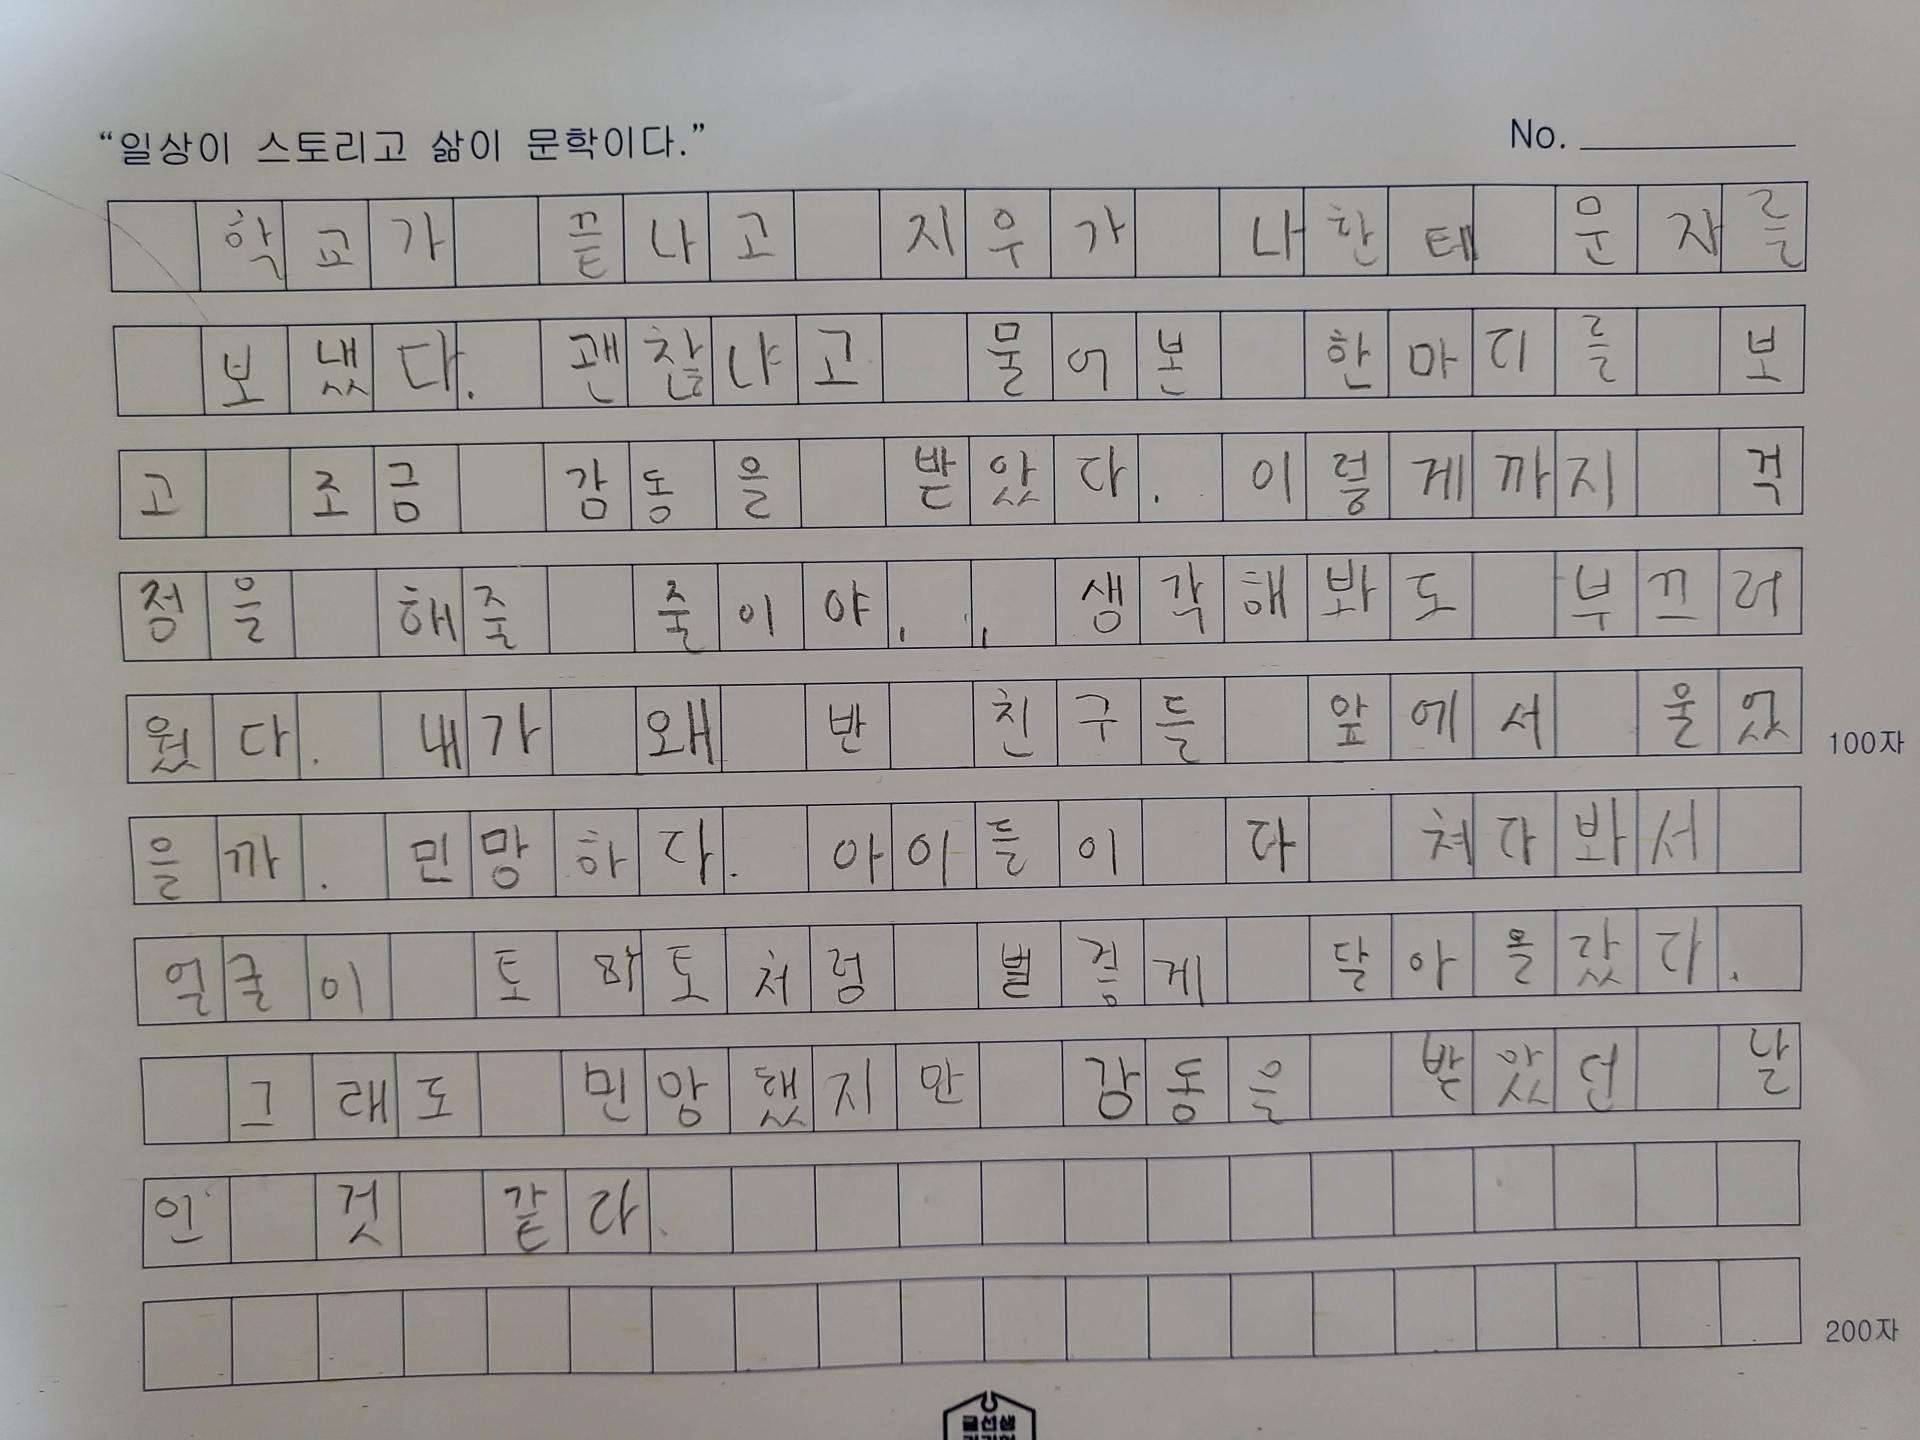 “일상이 스토리고 삶이 문학이다.” No.
학교가 끝나고 지우가 나한테 문자를
보냈다. 괜찮냐고 물어본 한마디를 보
고 조금 감동을 받았다. 이렇게까지 걱
정을 해줄 줄이야.. 생각해봐도 부끄러
웠다. 내가 왜 반 친구들 앞에서 울었 100자
을까.민망하다. 아이들이 다 쳐다봐서
얼굴이 토마토처럼 벌겋게 달아올랐다.
그래도 민망했지만 감동을 받았던 날
인 것 같다.
200자
글선생